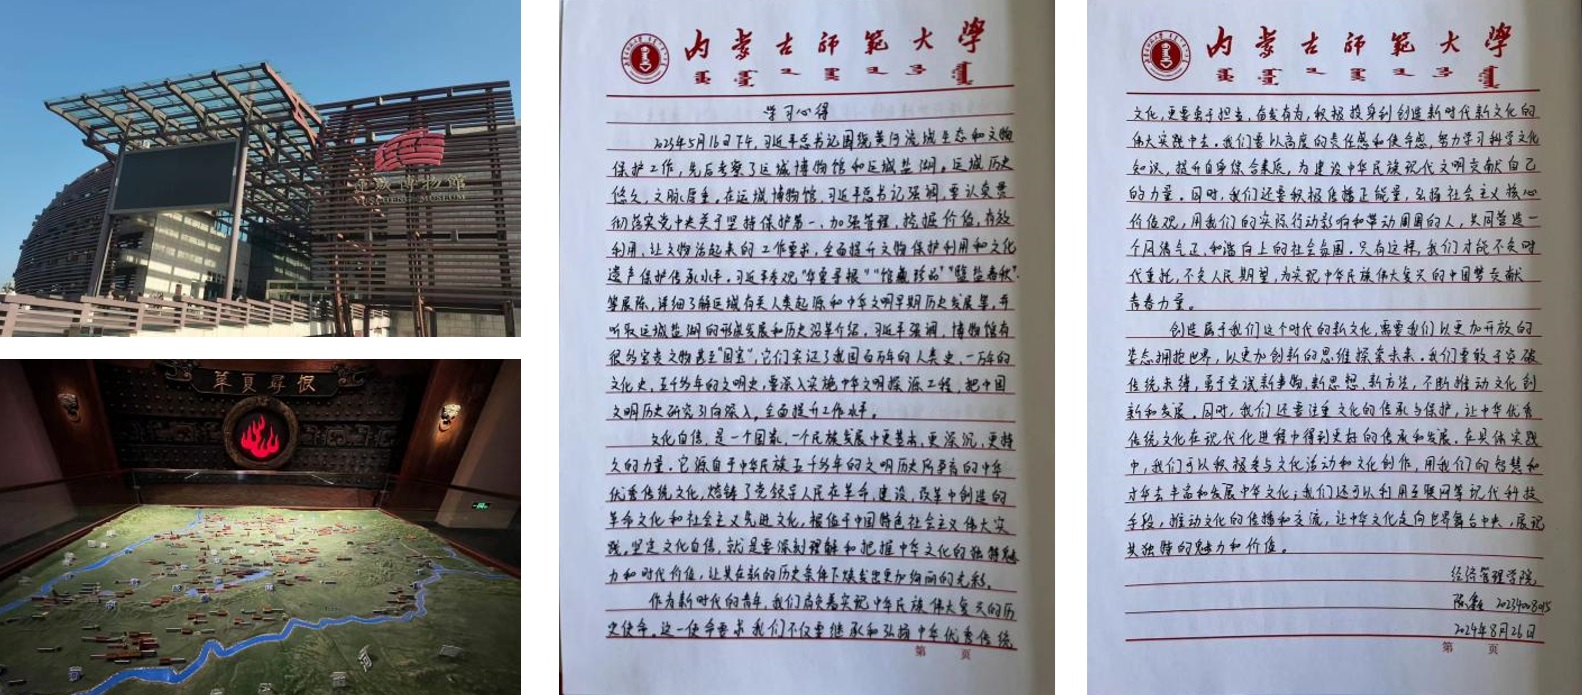 运城博物馆
YUNCHENG MUSEUM
华夏寻根
内蒙古师范大学
学习心得
2023年5月16日下午,习近平总书记围绕黄河流域生态和文物
保护工作,先后考察了运城博物馆和运城盐湖。运城历史
悠久,文脉厚重,在运城博物馆,习近平总书记强调,要认真贯
彻落实党中央关于坚持保护第一、加强管理、挖掘价值、有效
利用、让文物活起来的工作要求,全面提升文物保护利用和文化
遗产保护传承水平。习近平参观“华夏寻根”“馆藏珍品”“盬盐春秋”
等展陈,详细了解运城有关人类起源和中华文明早期历史发展等,并
听取运城盐湖的形成发展和历史沿革介绍。习近平强调,博物馆有
很多宝贵文物甚至“国宝”,它们实证了我国百万年的人类史、一万年的
文化史、五千多年的文明史,要深入实施中华文明探源工程,把中国
文明历史研究引向深入,全面提升工作水平。
文化自信,是一个国家、一个民族发展中更基本、更深沉、更持
久的力量。它源自于中华民族五千多年的文明历史所孕育的中华
优秀传统文化,熔铸了党领导人民在革命、建设、改革中创造的
革命文化和社会主义先进文化,植根于中国特色社会主义伟大实
践,坚定文化自信,就是要深刻理解和把握中华文化的独特魅
力和时代价值,让其在新的历史条件下焕发出更加绚丽的光彩。
作为新时代的青年,我们肩负着实现中华民族伟大复兴的历
史使命。这一使命要求我们不仅要继承和弘扬中华优秀传统
第 页
内蒙古师范大学
文化,更要勇于担当,奋发有为,积极投身到创造新时代新文化的
伟大实践中去。我们要以高度的责任感和使命感,努力学习科学文化
知识,提升自身综合素质,为建设中华民族现代文明贡献自己
的力量。同时,我们还要积极传播正能量,弘扬社会主义核心
价值观,用我们的实际行动影响和带动周围的人,共同营造一
个风清气正、和谐向上的社会氛围。只有这样,我们才能不负时
代重托,不负人民期望,为实现中华民族伟大复兴的中国梦贡献
青春力量。
创造属于我们这个时代的新文化,需要我们以更加开放的
姿态拥抱世界,以更加创新的思维探索未来。我们要敢于突破
传统束缚,勇于尝试新事物、新思想、新方法,不断推动文化创
新和发展。同时,我们还要注重文化的传承与保护,让中华优秀
传统文化在现代化进程中得到更好的传承和发展。在具体实践
中,我们可以积极参与文化活动和文化创作,用我们的智慧和
才华去丰富和发展中华文化;我们还可以利用互联网等现代科技
手段,推动文化的传播和交流,让中华文化走向世界舞台中央,展现
其独特的魅力和价值。
经济管理学院
2024年8月26日
第 页